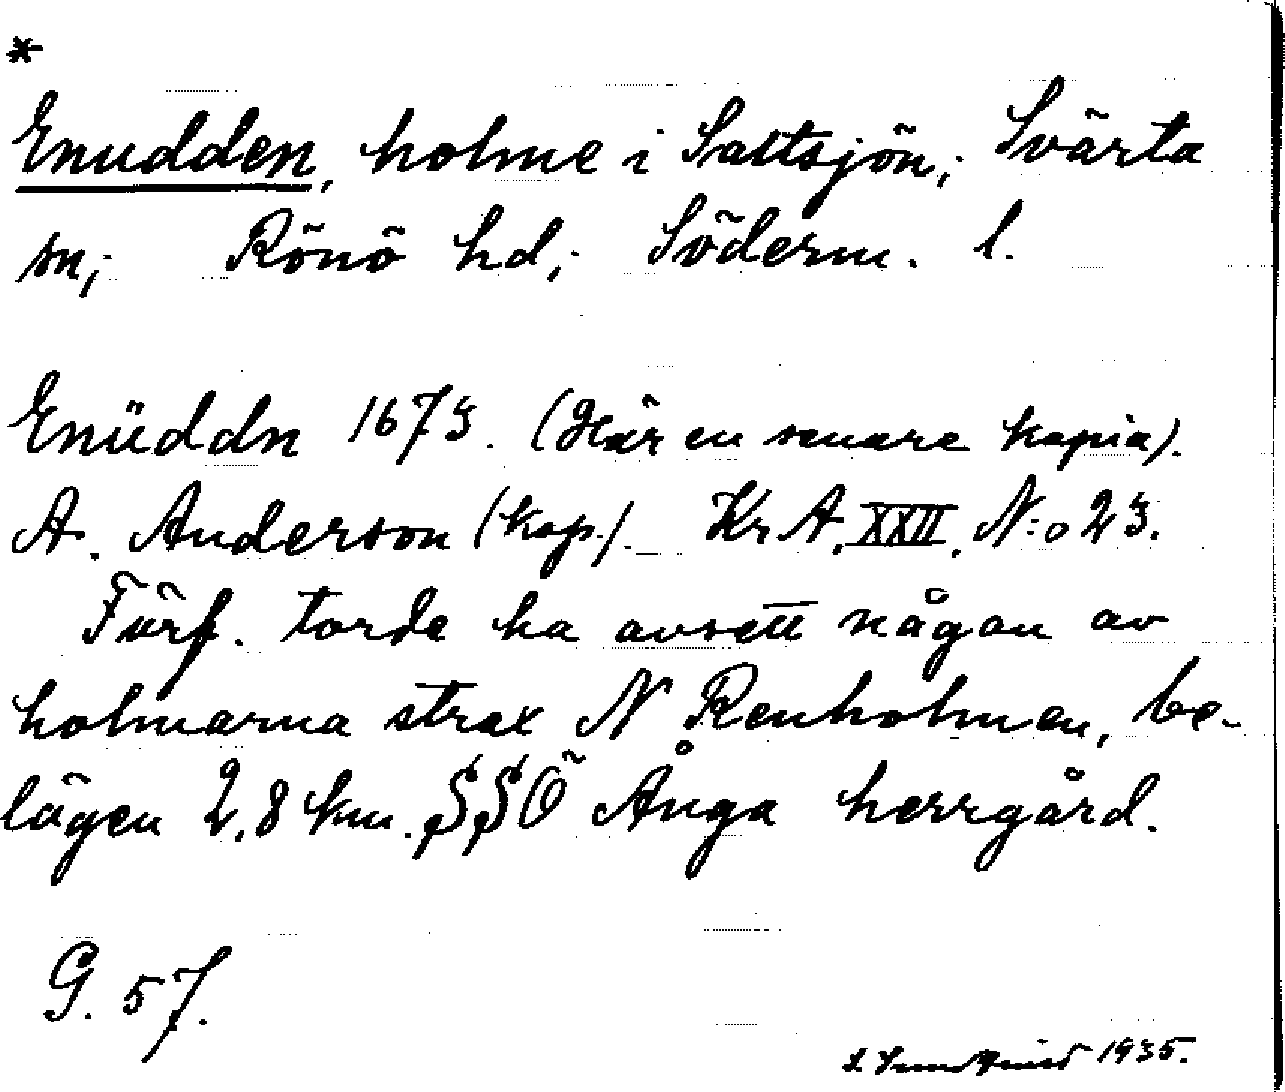 *
Enudden, holme i Saltsjön; Svärta
sn; Rönö hd; Söderm. l.
Enüddn 1673. (Här en senare kopia).
A. Anderson (kop.). Kr A, XXII, N:o 23.
Förf. torde ha avsett någon av
holmarna strax N Renholmen, be-
lägen 2,8 km. SSÖ Ånga herrgård.
G. 57.
1935.